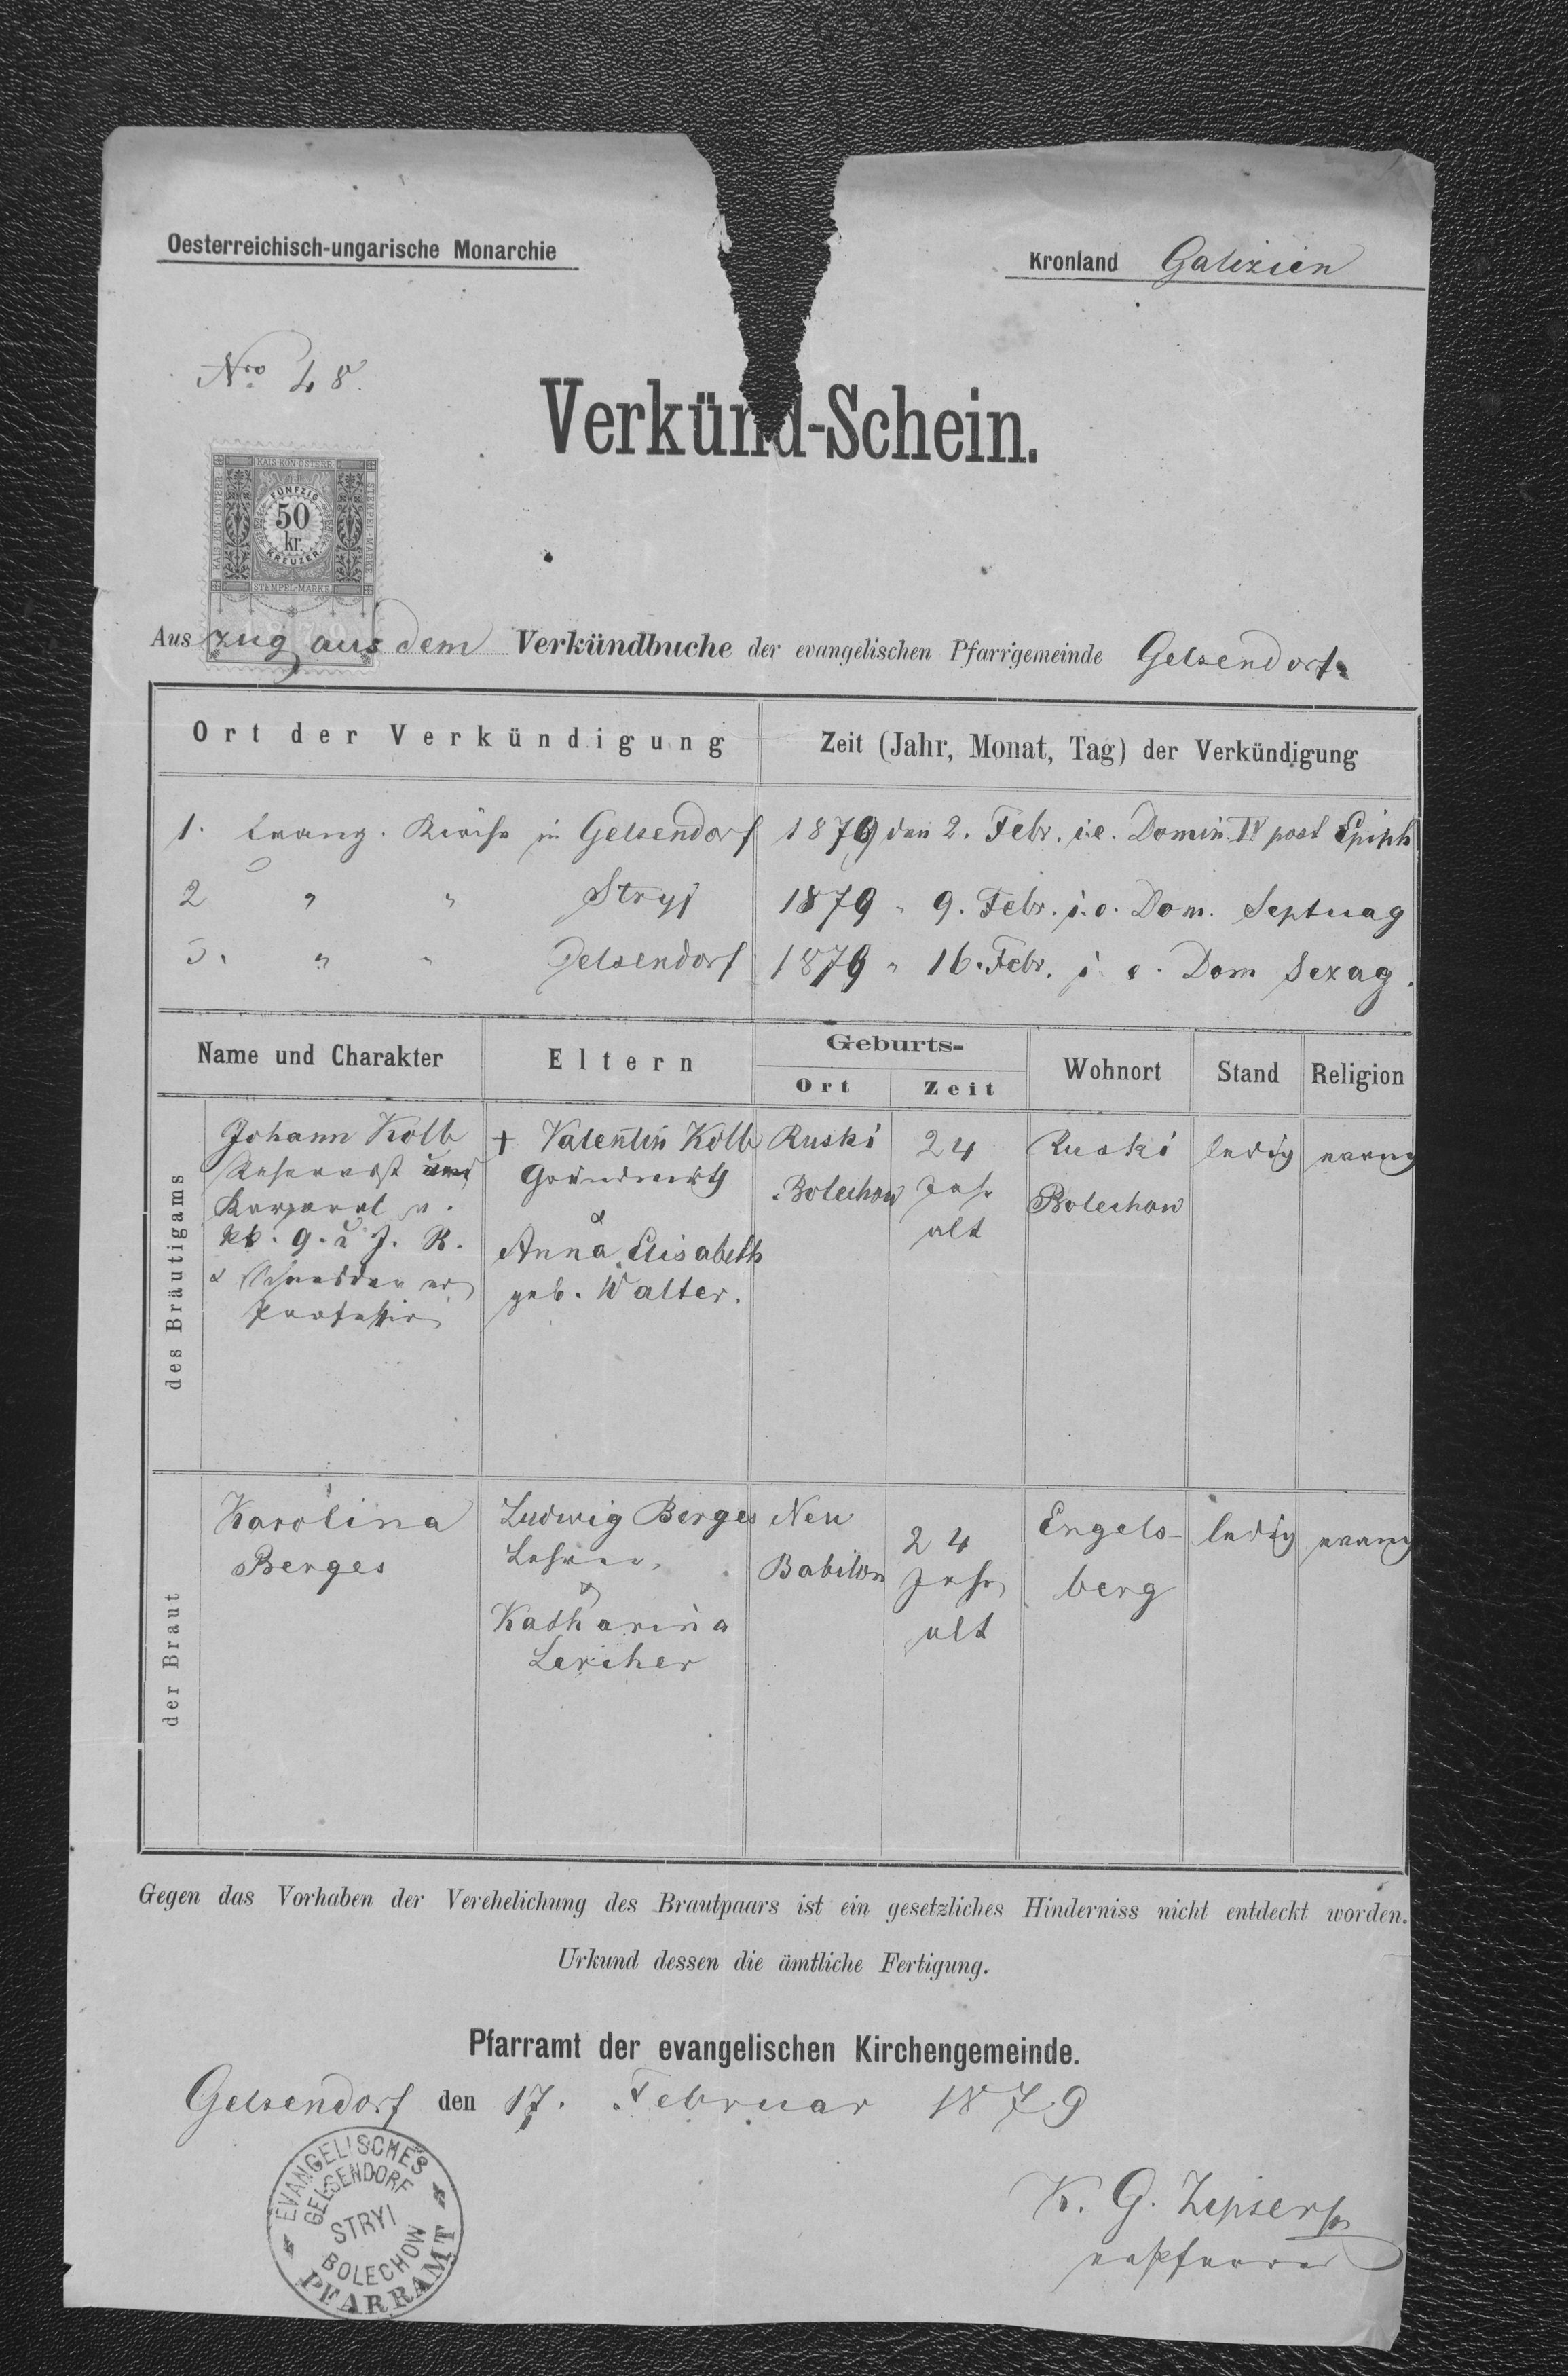 Oesterreichisch-ungarische Monarchie
Kronland Galizien
Nro 48.
Verkünd-Schein.
KAIS. KÖN. ÖSTERR.
STEMPEL-MARKE
FÜNFZIG
50
kr.
KREUZER
STEMPEL-MARKE
Auszug aus dem Verkündbuche der evangelischen Pfarrgemeinde Gelsendorf.
Ort der Verkündigung
Zeit (Jahr, Monat, Tag) der Verkündigung
1. Evang. Kirche in Gelsendorf 1879 den 2. Febr. i.e. Domin. IV post Epiph
2 " " Stryj 1879 " 9. Febr. i.e. Dom. Septuag
3. " " Gelsendorf 1879 " 16. Febr. i.e. Dom Sexag.
Name und Charakter
Eltern
Geburts-
Ort
Zeit
Wohnort
Stand
Religion
des Bräutigams
Johann Kolb
Reservist und
Korporal
9. J. R.
& Schneider
Profession
+ Valentin Kolb
Grundwirth
&
Anna Elisabeth
geb. Walter.
Ruski
Bolechow
24
Jahr
alt
Ruski
Bolechow
ledig
evang
der Braut
Karolina
Berges
Ludwig Berges
Lehrer,
&
Katharina
Lericher
Neu
Babilon
24
Jahr
alt
Engels-
berg
ledig
evang
Gegen das Vorhaben der Verehelichung des Brautpaars ist ein gesetzliches Hinderniss nicht entdeckt worden.
Urkund dessen die ämtliche Fertigung.
Pfarramt der evangelischen Kirchengemeinde.
Gelsendorf den 17. Februar 1879
EVANGELISCHES
GELSENDORF
STRYI
BOLECHOW
PFARRAMT
K. G. Zipser